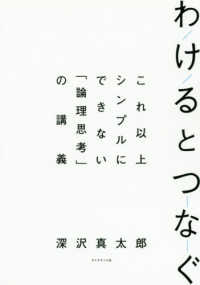 わけるとつなぐ
これ以上
シンプルに
できない
「論理思考」
の講義
深沢真太郎
ダイヤモンド社